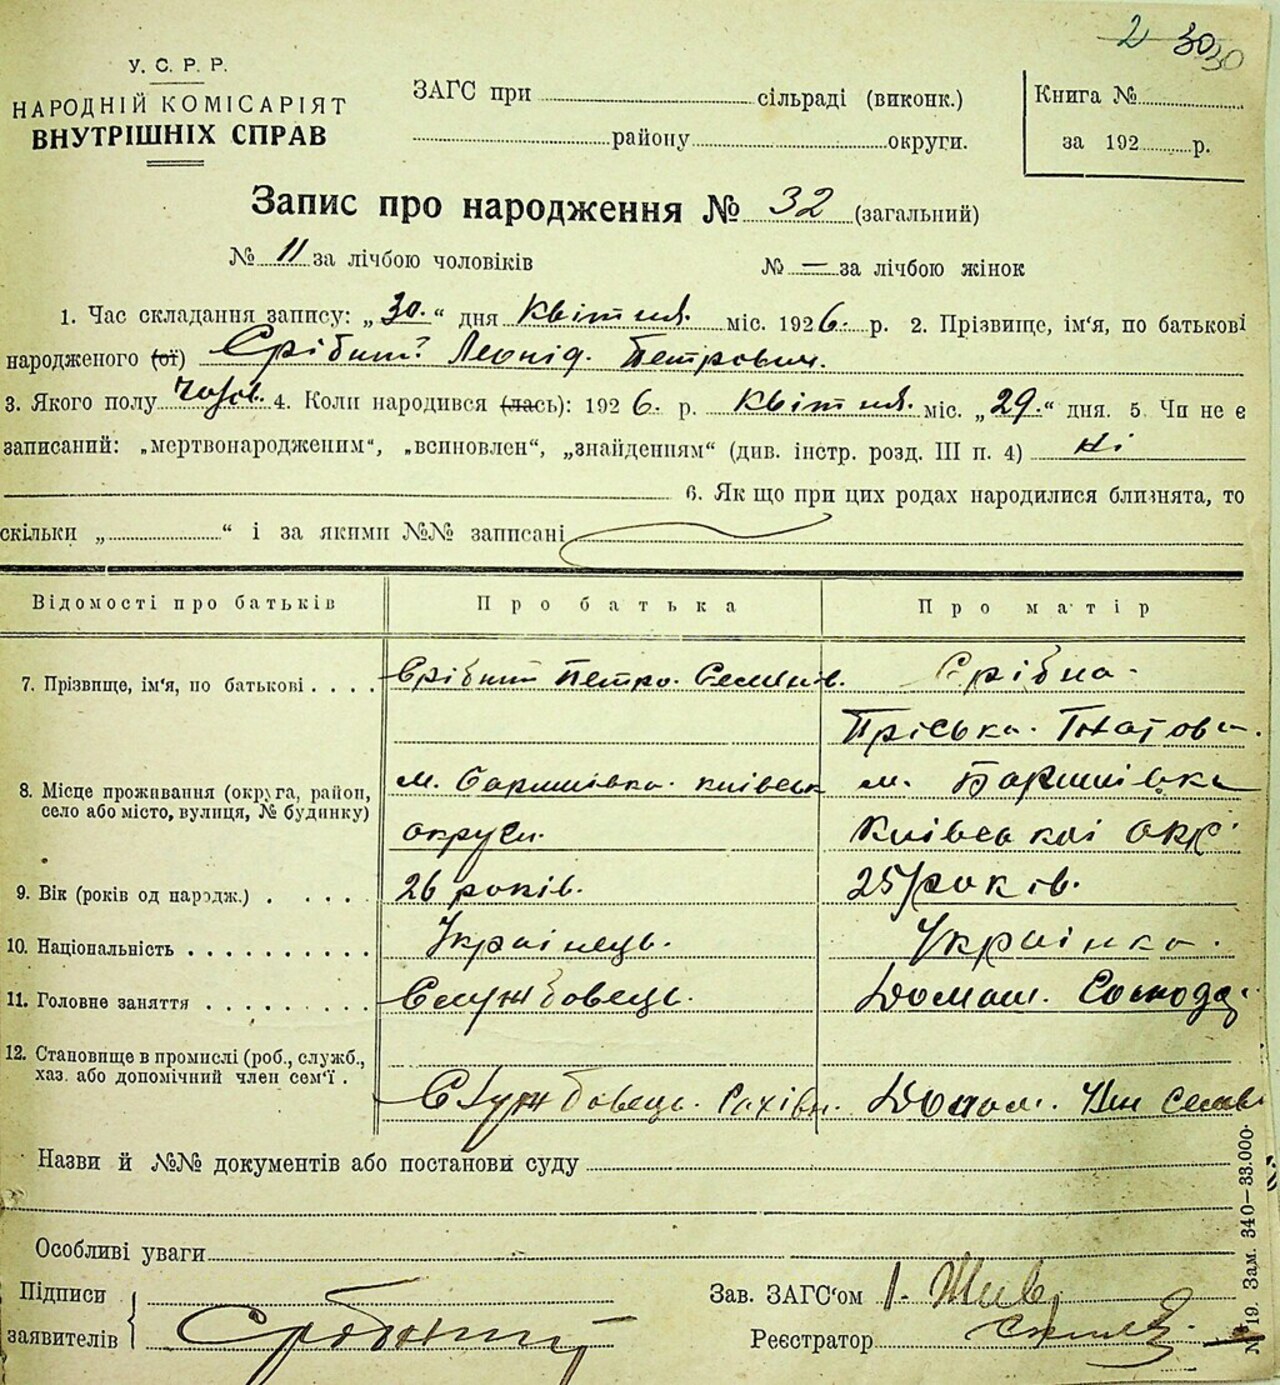 2 30 30
У. С. Р. Р.
НАРОДНІЙ КОМІСАРІЯТ
ВНУТРІШНІХ СПРАВ
ЗАГС при сільраді (виконк.)
району округи.
Книга №
за 192 р.
Запис про народження № 32 (загальний)
№ 11 за лічбою чоловіків № — за лічбою жінок
1. Час складання запису: „30.“ дня Квітня. міс. 1926. р. 2. Прізвище, ім'я, по батькові
народженого (ої) Срібний Леонід. Петрович.
3. Якого полу чолов. 4. Коли народився (лась): 1926. р. квітня. міс. „29.“ дня. 5. Чи не є
записаний: „мертвонародженим“, „всиновлен“, „знайденням“ (див. інстр. розд. III п. 4) ні
6. Як що при цих родах народилися близнята, то
скільки „ “ і за якими №№ записані
Відомості про батьків Про батька Про матір
7. Прізвище, ім'я, по батькові Срібний Петро. Семенов. Срібна
Пріська. Гнатова.
8. Місце проживання (округа, район, м. Баришівка. київськ м. Баришівка
село або місто, вулиця, № будинку) округи. Київської окр.
9. Вік (років од народж.) 26 років. 25 років.
10. Національність Українець. Українка.
11. Головне заняття Службовець. Домаш. Господ.
12. Становище в промислі (роб., служб.,
хаз. або допомічний член сем'ї. Службовець. Домом. член семьі
Назви й №№ документів або постанови суду
Особливі уваги
Підписи
заявителів Срібний
Зав. ЗАГС'ом
Реєстратор
№ 19. Зам. 340—33.000.